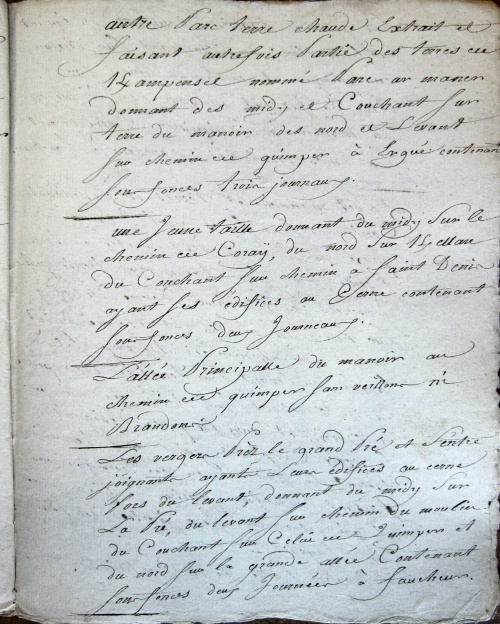 autre Parc terre chaude Extrait et
faisant autrefois Partie des terres de
Kampensel nommé Parc ar maner
donnant des midy et Couchant sur
terre du manoir des nord et Levant
sur chemin de quimper à Ergué contenant
sous fonces trois journaux.
une Jeune taille donnant du midy sur le
chemin de Coray, du nord sur Kellau
du Couchant sur chemin à Saint Denis
ayant ses edifices au Cerne contenant
sous fonces deux Journeaux.
L'allée Principalle du manoir au
chemin de quimper san veillons ni
Brandons
Les vergers Prez le grand Pré et s'entre
joignants ayants Leurs édifices au cerne
fors du levant, donnant du midy sur
La Pré, du levant sur chemin du moulin
du Couchant sur Celui de Quimper et
du nord sur la grande allée Contenant
sous fonces deux Journées à faucheur.